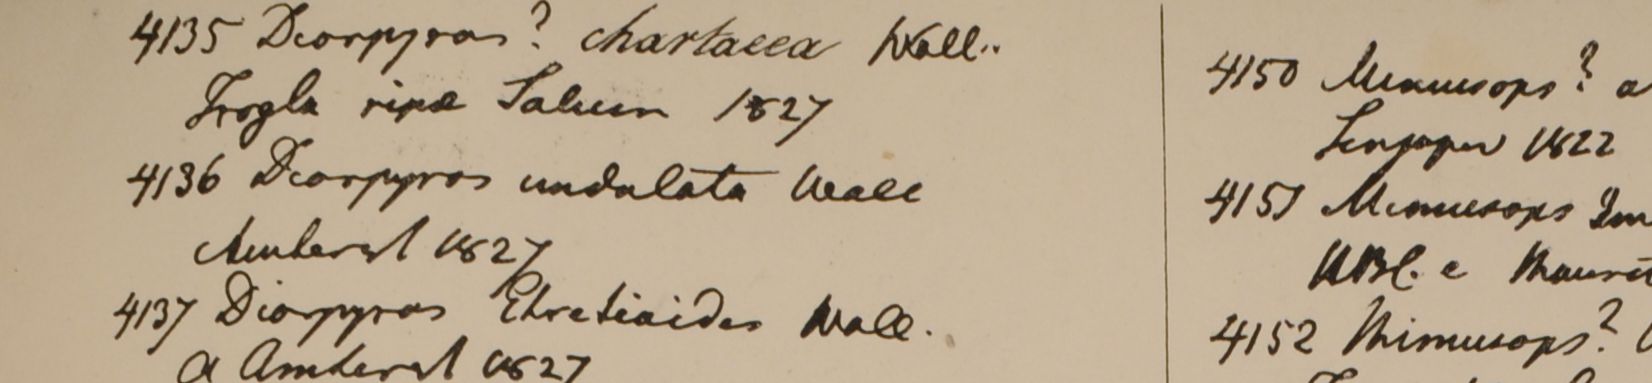 4135 Diospyros? chartacea Wall..
Trogla ripæ Saluen 1827
4136 Diospyros undulata Wall
Amherst 1827
4137 Diospyros Ehretioides Wall.
a Amherst 1827
4150 Mimusops? a
Singapur 1822
4151 Mimusops Im
HBC. e Maurit
4152 Mimusops?